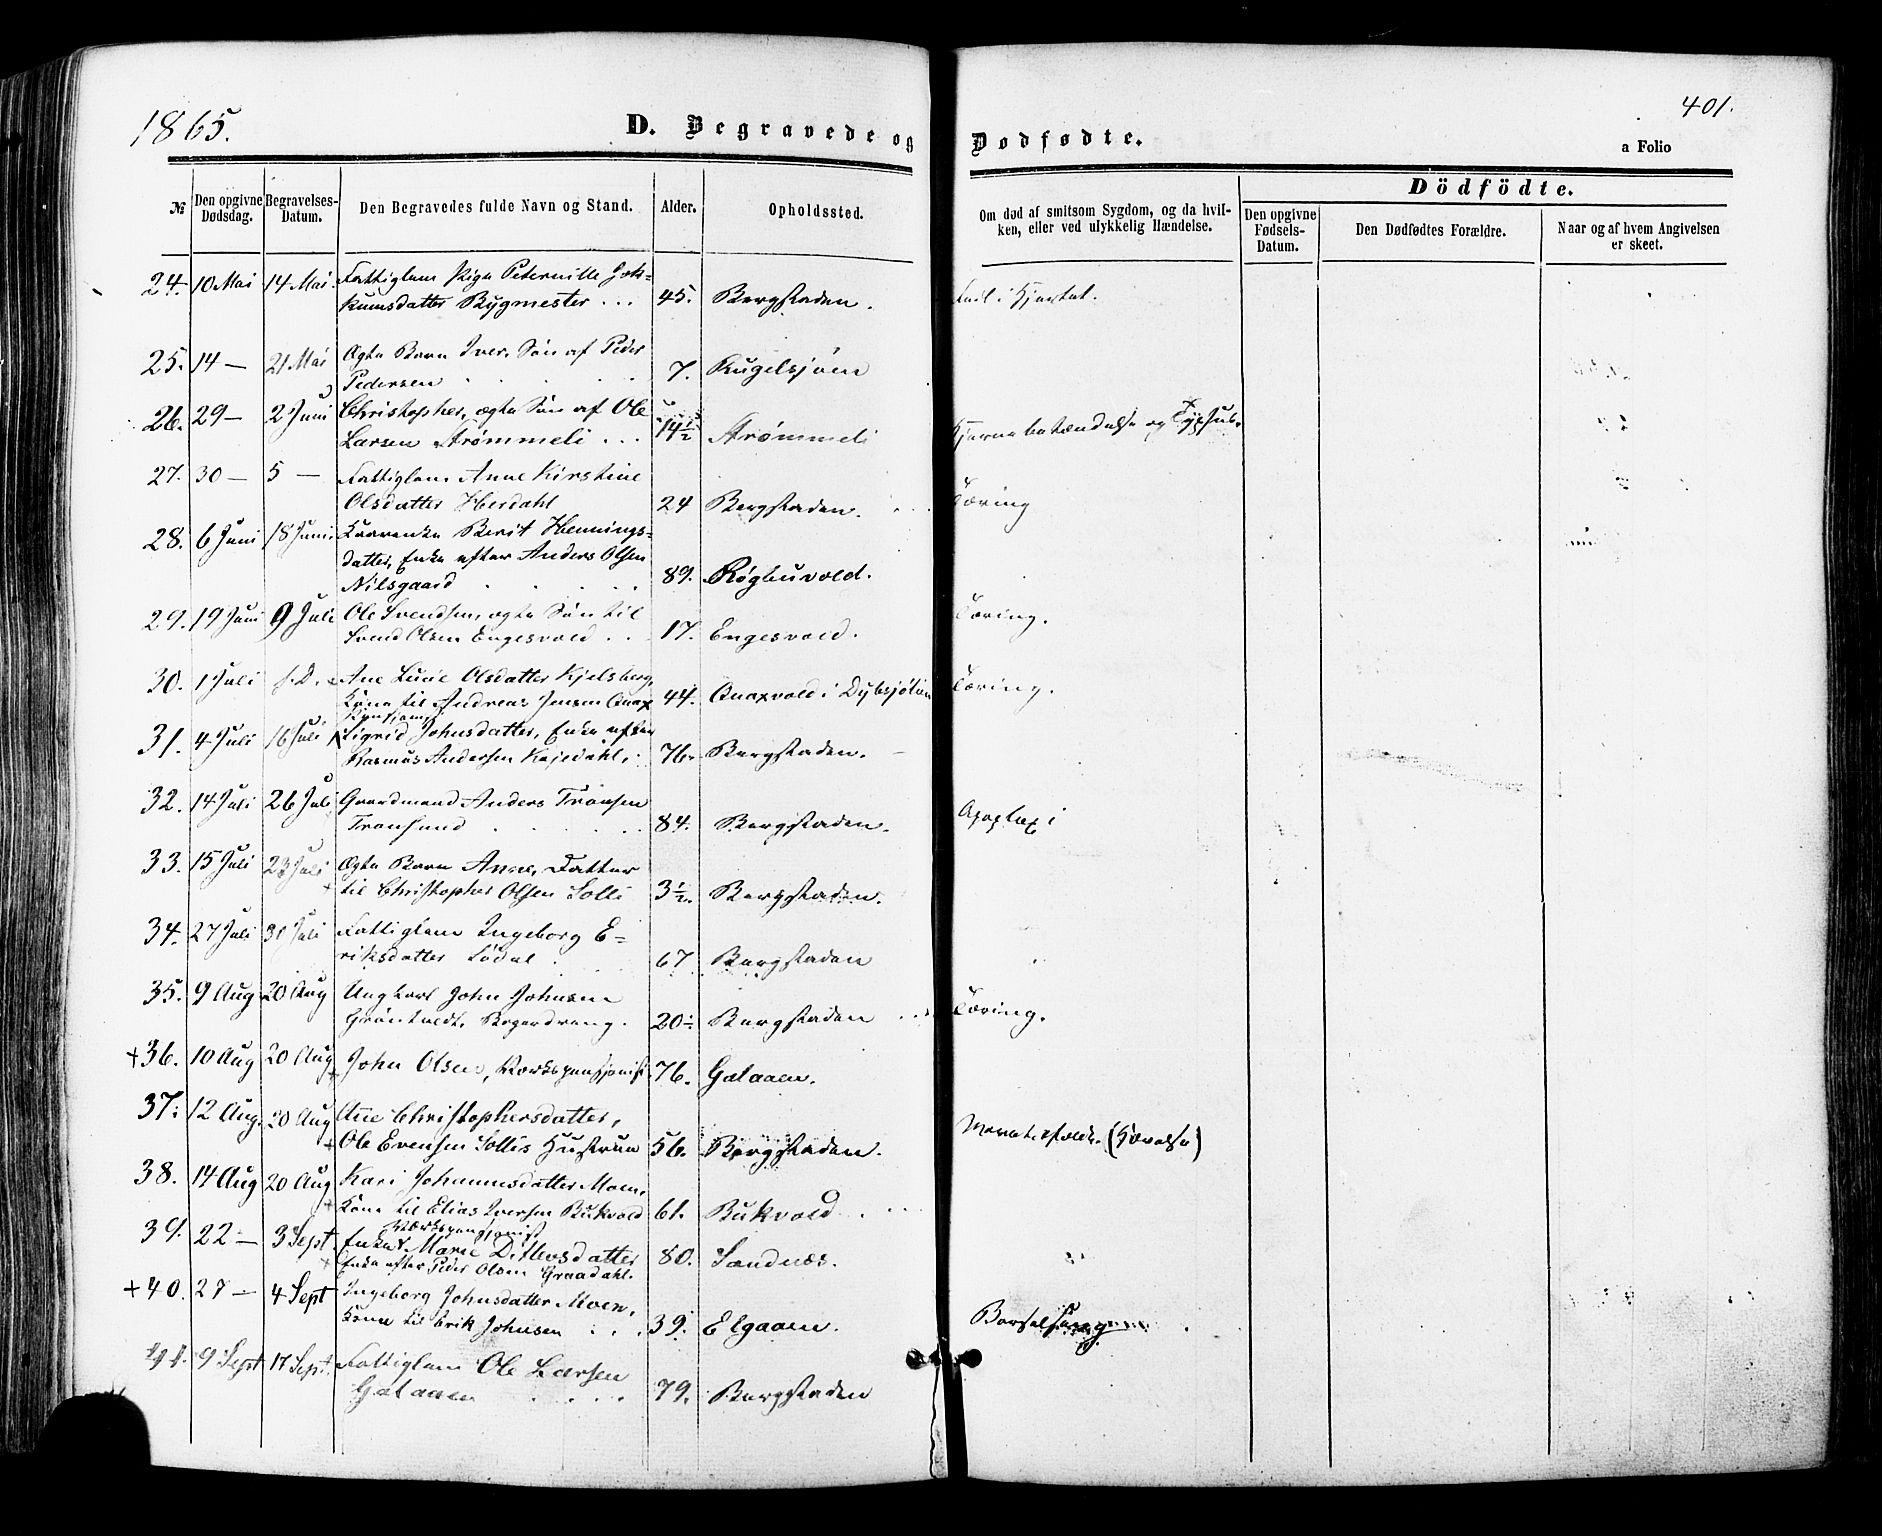 1865.
D. Begravede og Dødfødte.
401.
a Folio
№
Den opgivne Dødsdag.
Begravelses-Datum.
Den Begravedes fulde Navn og Stand.
Alder.
Opholdssted.
Om død af smitsom Sygdom, og da hvil-
ken, eller ved ulykkelig Hændelse.
Dödfödte.
Den opgivne Fødsels-Datum.
Den Dødfødtes Forældre.
Naar og af hvem Angivelsen er skeet.
24. 10 Mai 14 Mai. Fattiglem Pige Peternille Jok-
kumsdatter Bygmester ... 45. Bergstaden. Feil i Hjertet.
25. 14 — 21 Mai Ægte Barn Iver, Søn af Peder
Pedersen 7. Rugelsjøen
26. 29 — 2 Juni Christopher, ægte Søn af Ole
Larsen Strømmeli ... 14½ Strømmeli Hjernebetændelse og Typhus.
27. 30 — 5 — Fattiglem Anne Kirstine
Olsdatter Herdahl 24 Bergstaden. Tæring
28. 6 Juni 18 Juni Berit Hennings-
datter, Enke efter Anders Olsen
Nilsgaard 89. Røgbuvold.
29. 19 Juni 9 Juli Ole Svendsen, ægte Søn til
Svend Olsen Engesvold .. 17. Engesvold. Tæring.
30. 1 Juli s.D. Ane Lucie Olsdatter Kjelsberg,
Kone til Andreas Jensen 44. i Dybsjølien Tæring.
31. 4 Juli 16 Juli Sigrid Johnsdatter, Enke efter
Rasmus Andersen 76. Bergstaden.
32. 14 Juli 26 Juli Gaardmand Anders Tronsen
Tronsund 84. Bergstaden. Apoplexi
33. 15 Juli 23 Juli Ægte Barn Anne, Datter
til Christopher Olsen Solli 3½. Bergstaden.
34. 27 Juli 30 Juli Fattiglem Ingeborg E-
riksdatter 67 Bergstaden
35. 9 Aug 20 Aug Ungkarl John Johnsen
Grøntvedt, 20 Bergstaden Tæring.
+36. 10 Aug 20 Aug John Olsen, Værkspensjonist 76. Galaaen.
37. 12 Aug. 20 Aug Ane Christophersdatter,
Ole Evensen Sollis Hustrue 56. Bergstaden.
38. 14 Aug 20 Aug Kari Johannesdatter Moen,
Kone til Elias Iversen Bukvold 61. Bukvold
39. 22 — 3 Sept. Værkspensjonist
Enke Marie Ditlevsdatter
Enke efter Peder Olsen Graadahl. 80. Sandnæs.
+40. 27 — 4 Sept Ingeborg Johnsdatter Moen,
Kone til Erik Johnsen ... 39. Elgaaen. Barselseng
41. 9 Sept. 17 Sept. Fattiglem Ole Larsen
Galaaen .... 79. Bergstaden